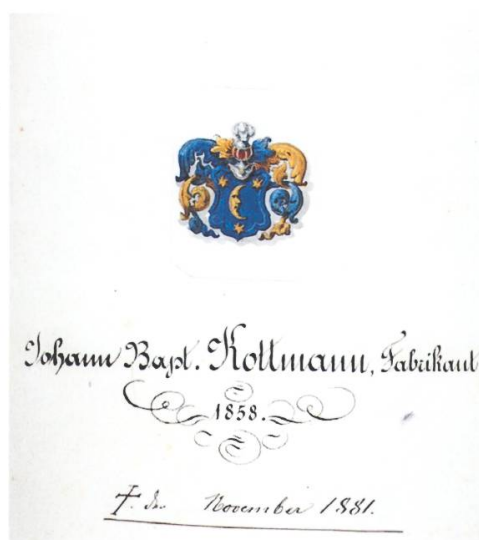 Johann Bapt. Kottmann, Fabrikant
1858.
†. November 1881.